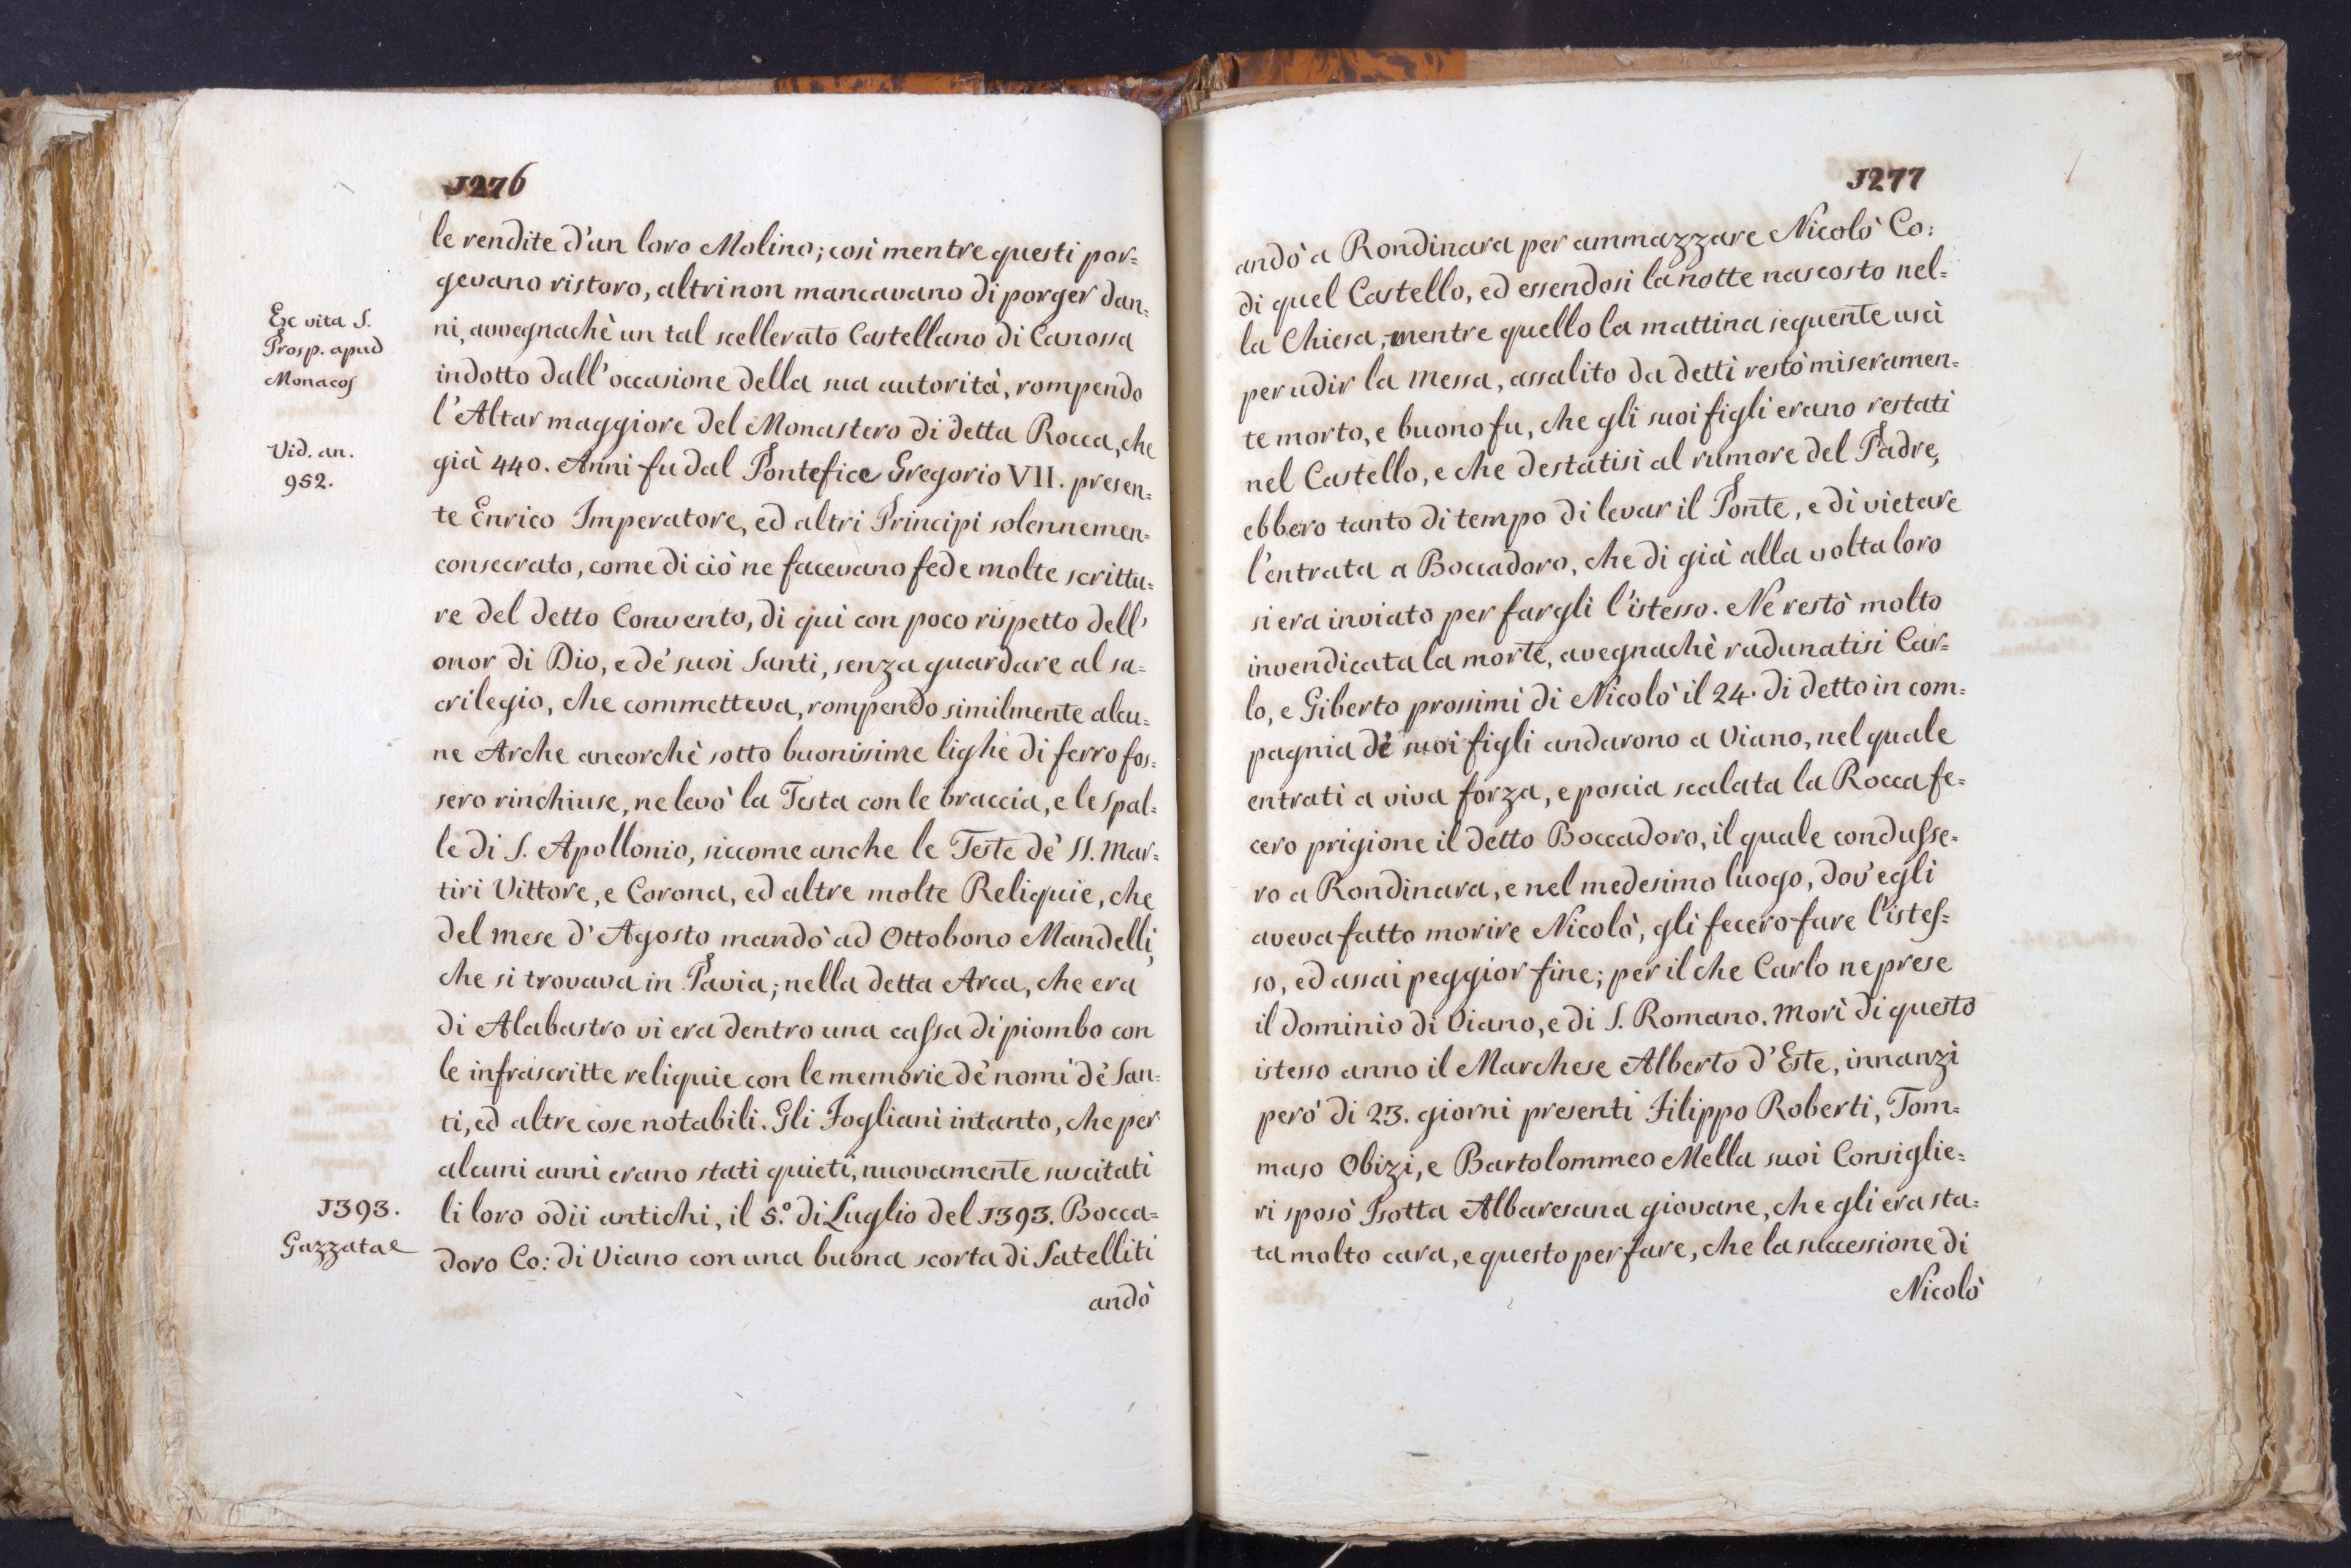 1276
le rendite d'un loro Molino; così mentre questi por=
gevano ristoro, altri non mancavano di porger dan=
Ex vita S.
Prosp. apud
Monacos
ni, avvegnachè un tal scellerato Castellano di Canossa
indotto dall'occasione della sua autorità, rompendo
l'Altar maggiore del Monastero di detta Rocca, che
Vid. an.
952.
già 440. Anni fu dal Pontefice Gregorio VII. presen=
te Enrico Imperatore, ed altri Principi solennemen=
consecrato, come di ciò ne facevano fede molte scrittu=
re del detto Convento, di qui con poco rispetto dell'
onor di Dio, e de' suoi Santi, senza guardare al sa=
crilegio, che commetteva, rompendo similmente alcu=
ne Arche ancorchè sotto buonissime lighe di ferro fos=
sero rinchiuse, ne levò la Testa con le braccia, e le spal=
le di S. Apollonio, siccome anche le Teste de' SS. Mar=
tiri Vittore, e Corona, ed altre molte Reliquie, che
del mese d'Agosto mandò ad Ottobono Mandelli,
che si trovava in Pavia; nella detta Arca, che era
di Alabastro vi era dentro una cassa di piombo con
le infrascritte reliquie con le memorie de' nomi de' San=
ti, ed altre cose notabili. Gli Fogliani intanto, che per
alcuni anni erano stati quieti, nuovamente suscitati
1393.
Gazzatae
li loro odii antichi, il 5.º di Luglio del 1393. Bocca=
doro Co: di Viano con una buona scorta di Satelliti
andò
1277
andò a Rondinara per ammazzare Nicolò Co:
di quel Castello, ed essendosi la notte nascosto nel=
la Chiesa, mentre quello la mattina seguente uscì
per udir la Messa, assalito da detti restò miseramen=
te morto, e buono fu, che gli suoi figli erano restati
nel Castello, e che destatisi al rumore del Padre,
ebbero tanto di tempo di levar il Ponte, e di vietare
l'entrata a Boccadoro, che di già alla volta loro
si era inviato per fargli l'istesso. Ne restò molto
invendicata la morte, avegnachè radunatisi Car=
lo, e Giberto prossimi di Nicolò il 24. di detto in com=
pagnia de' suoi figli andarono a Viano, nel quale
entrati a viva forza, e poscia scalata la Rocca fe=
cero prigione il detto Boccadoro, il quale condusse=
ro a Rondinara, e nel medesimo luogo, dov'egli
aveva fatto morire Nicolò, gli fecero fare l'istes=
so, ed assai peggior fine; per il che Carlo ne prese
il dominio di Viano, e di S. Romano. Morì di questo
istesso anno il Marchese Alberto d'Este, innanzi
però di 23. giorni presenti Filippo Roberti, Tom=
maso Obizi, e Bartolommeo Mella suoi Consiglie=
ri sposò Isotta Albaresana giovane, che gli era sta=
ta molto cara, e questo per fare, che la successione di
Nicolò